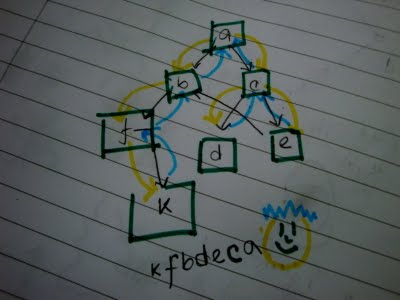 a
b c
f d e
k
kfbdeca